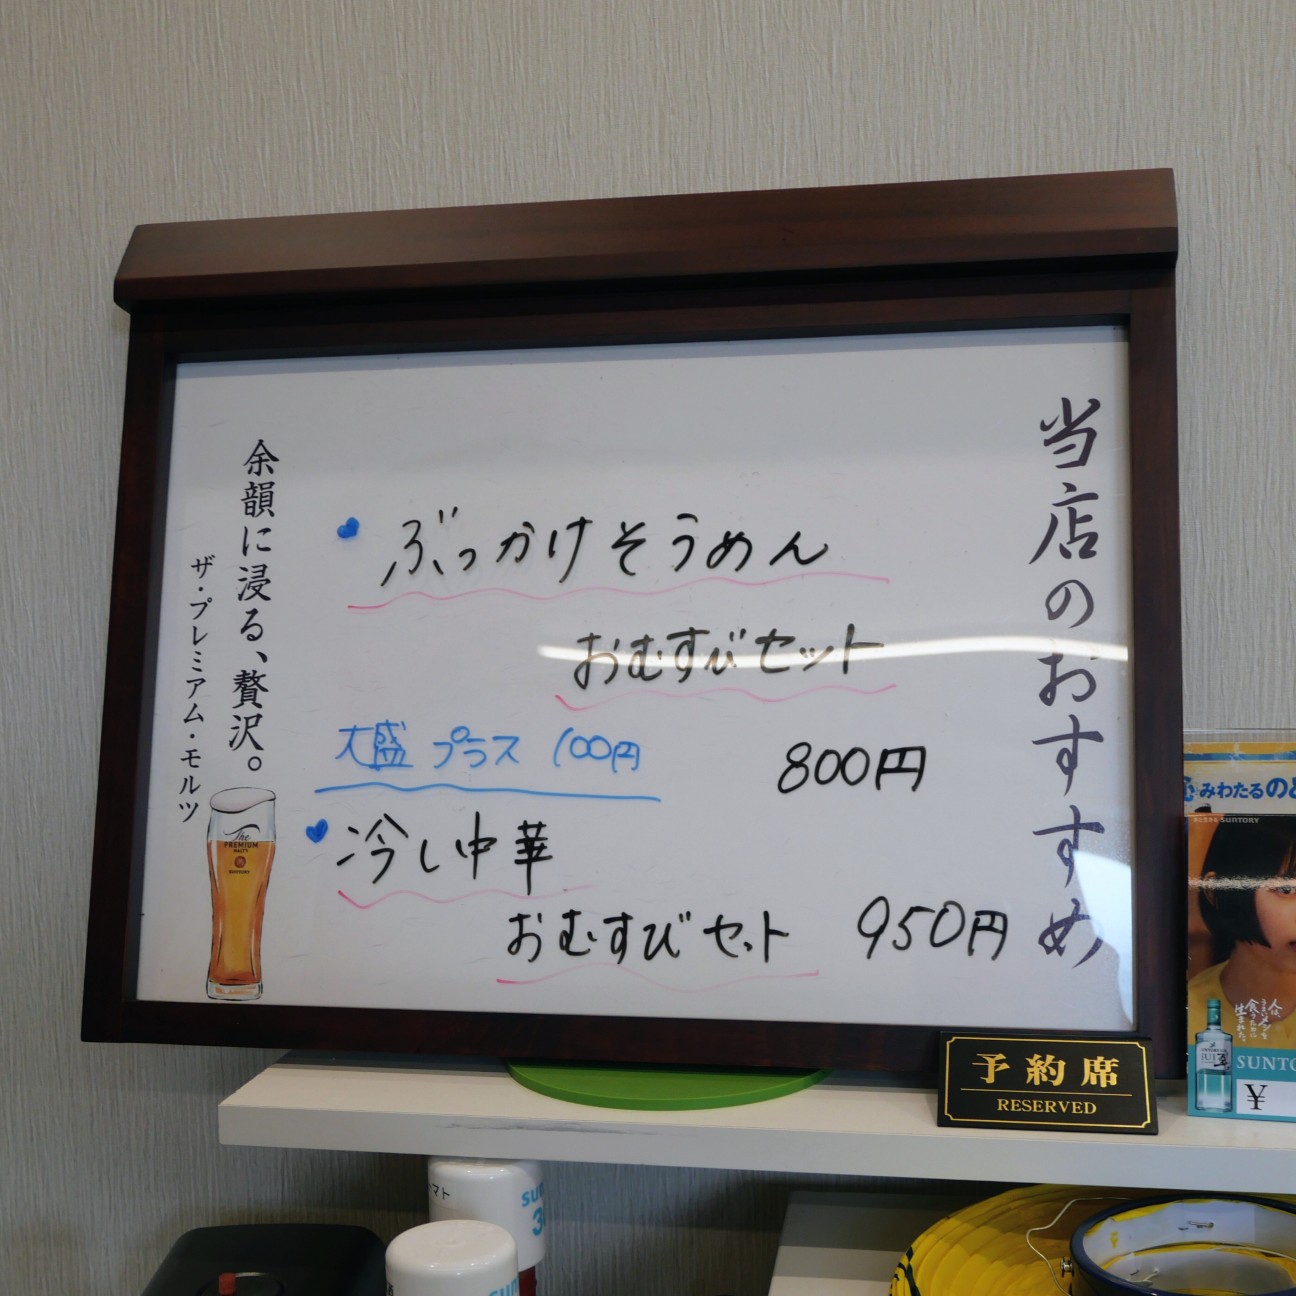 当店のおすすめ
ぶっかけそうめん
おむすびセット
大盛 プラス 100円
800円
冷し中華
おむすびセット 950円
余韻に浸る、贅沢。
ザ・プレミアム・モルツ
The
PREMIUM
MALT'S
SUNTORY
予約席
RESERVED
みわたるのど
SUNTORY
人は、
うまいメシを
食うために
生まれた。
SUNTO
¥
マト
sun
30
sun